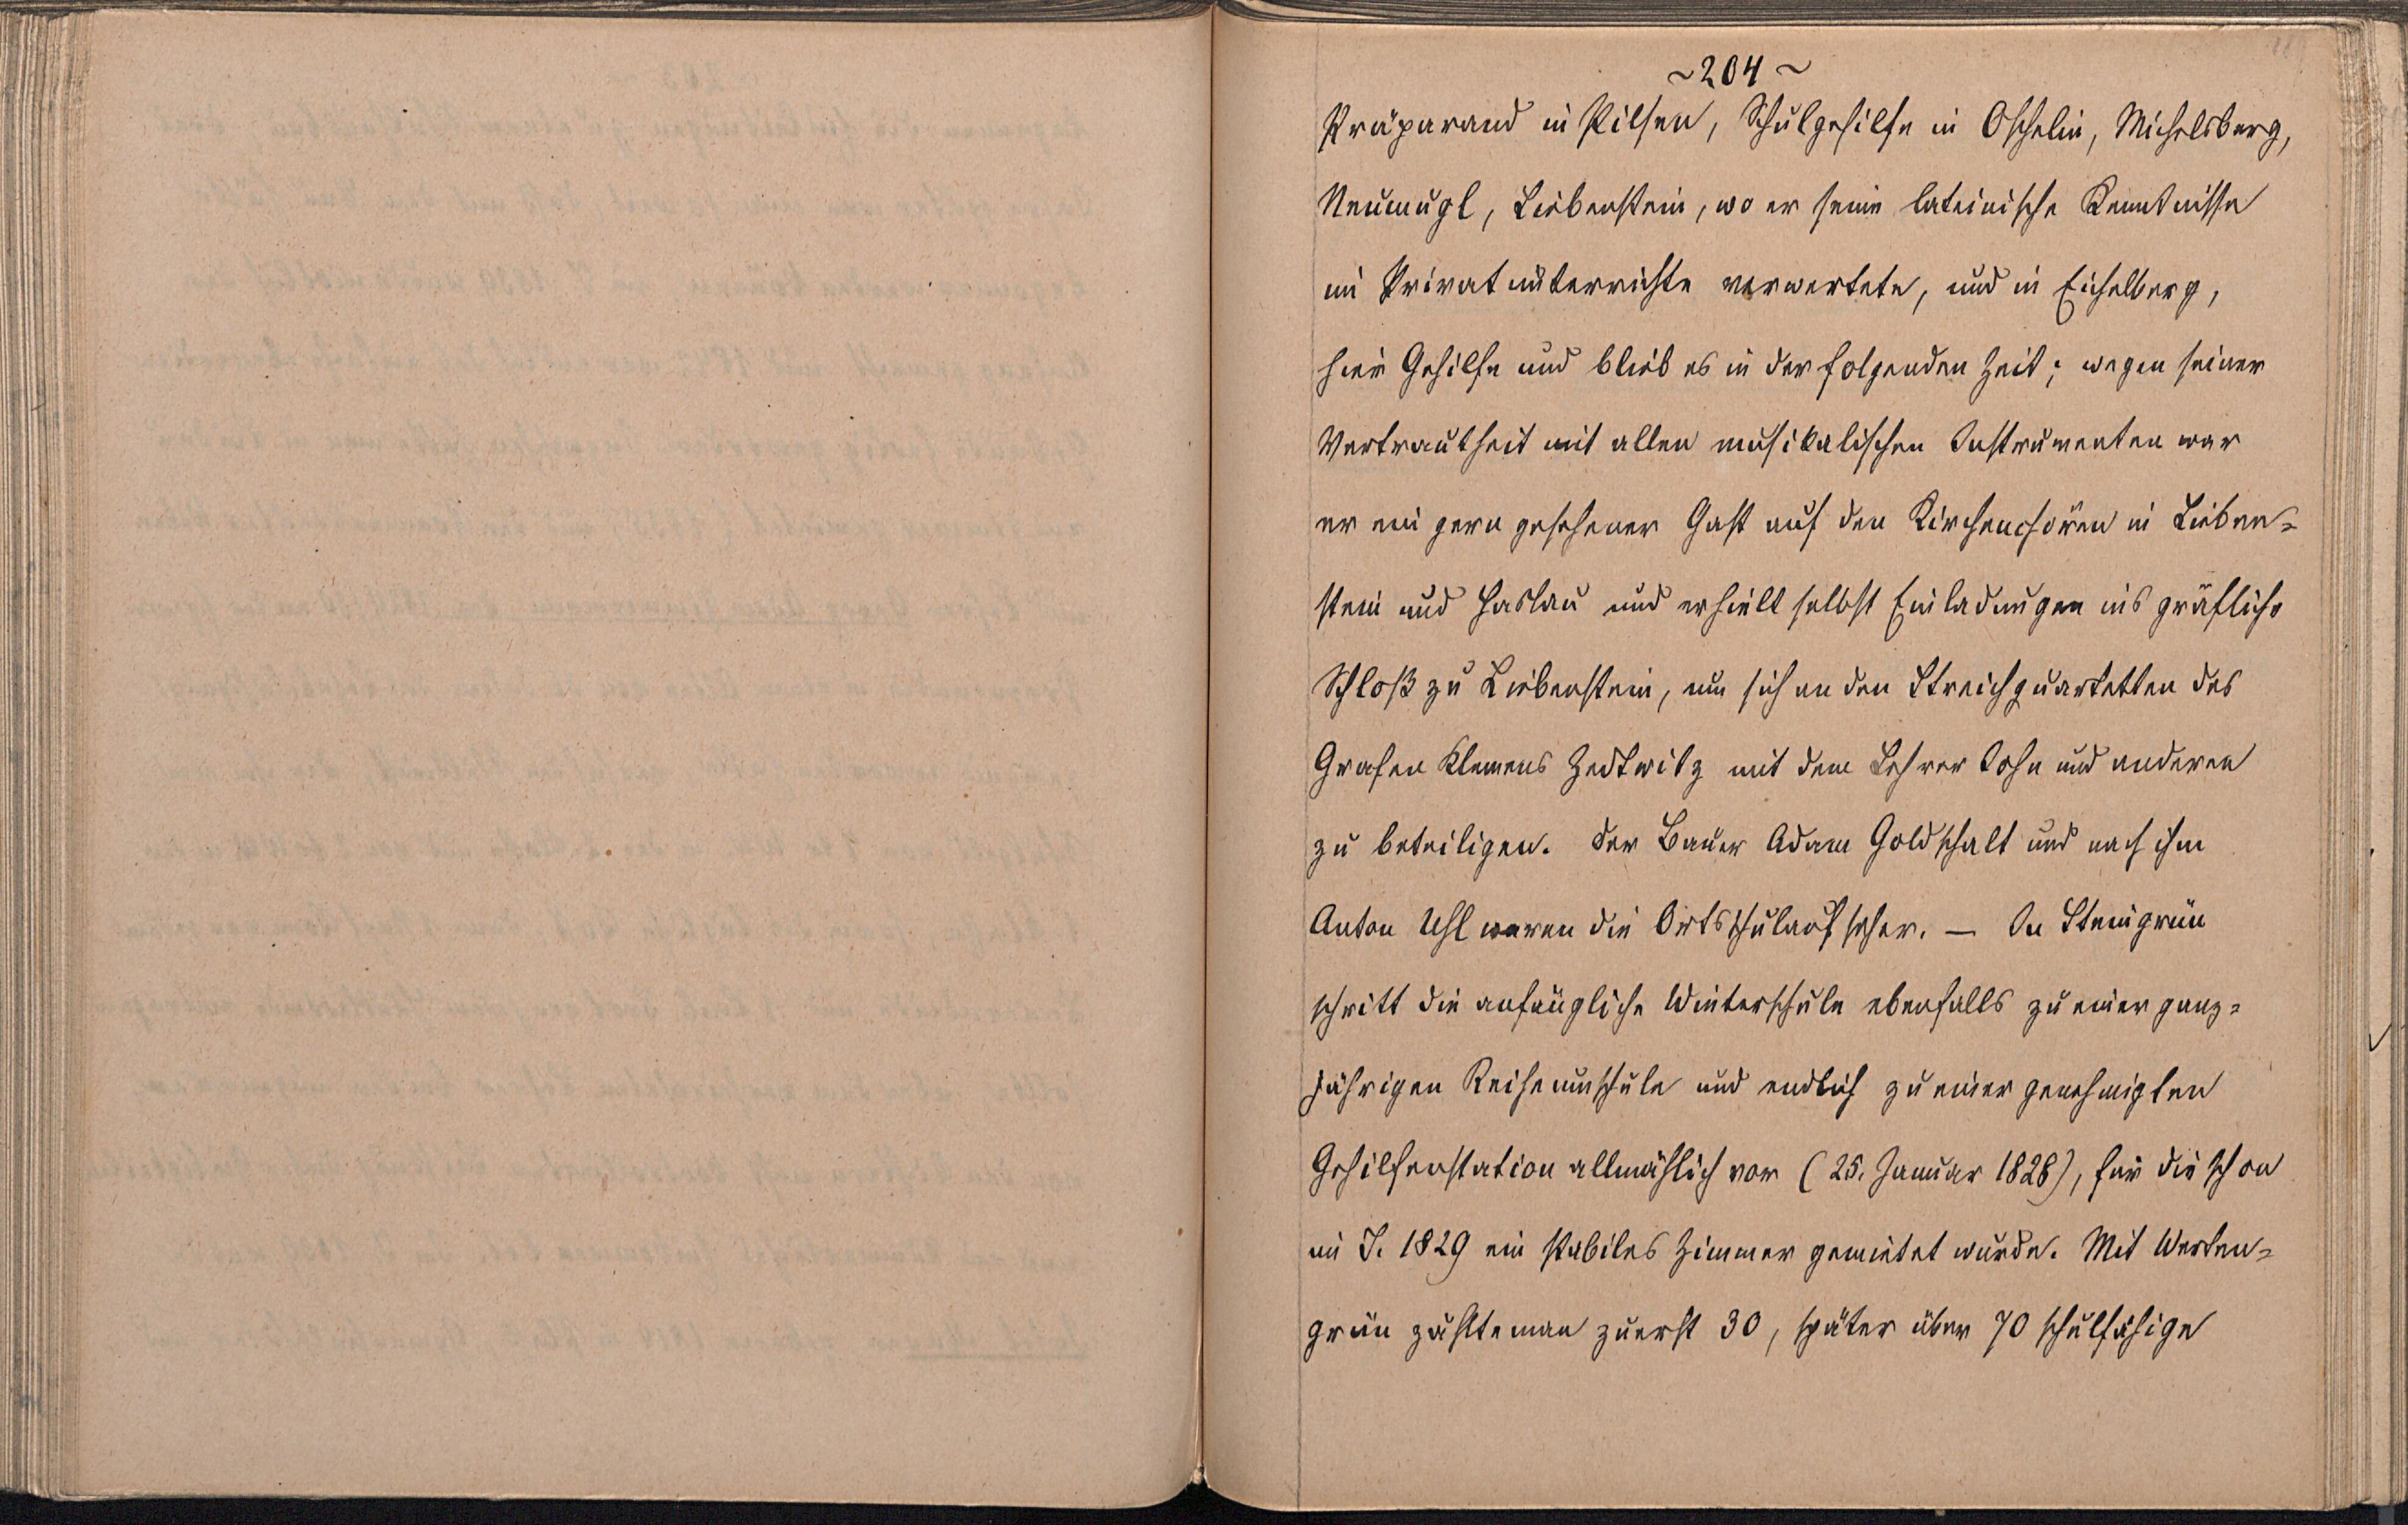 ~204~
Präparand in Pilsen, Schulgehilfe in Oschelin, Michelsberg,
Neumugl, Liebenstein, wo er seine lateinische Kenntnisse
im Privatunterrichte verwertete, und in Eichelberg,
hier Gehilfe und blieb es in der folgenden Zeit; wegen seiner
Vertrautheit mit allen musikalischen Instrumenten war
er ein gern gesehener Gast auf den Kirchenchören in Lieben=
stein und Haslau und erhielt selbst Einladungen ins gräfliche
Schloß zu Liebenstein, um sich an den Streichquartetten des
Grafen Klemens Zedtwitz mit dem Lehrer John und anderen
zu beteiligen. Der Bauer Adam Goldschalt und nach ihm
Anton Uhl waren die Ortsschulaufseher. — In Steingrün
schritt die anfängliche Winterschule ebenfalls zu einer ganz=
jährigen Reiheumschule und endlich zu einer genehmigten
Gehilfenstation allmählich vor (25. Januar 1828), für die schon
im J. 1829 ein stabiles Zimmer gemietet wurde. Mit Werten=
grün zählte man zuerst 30, später über 70 schulfähige